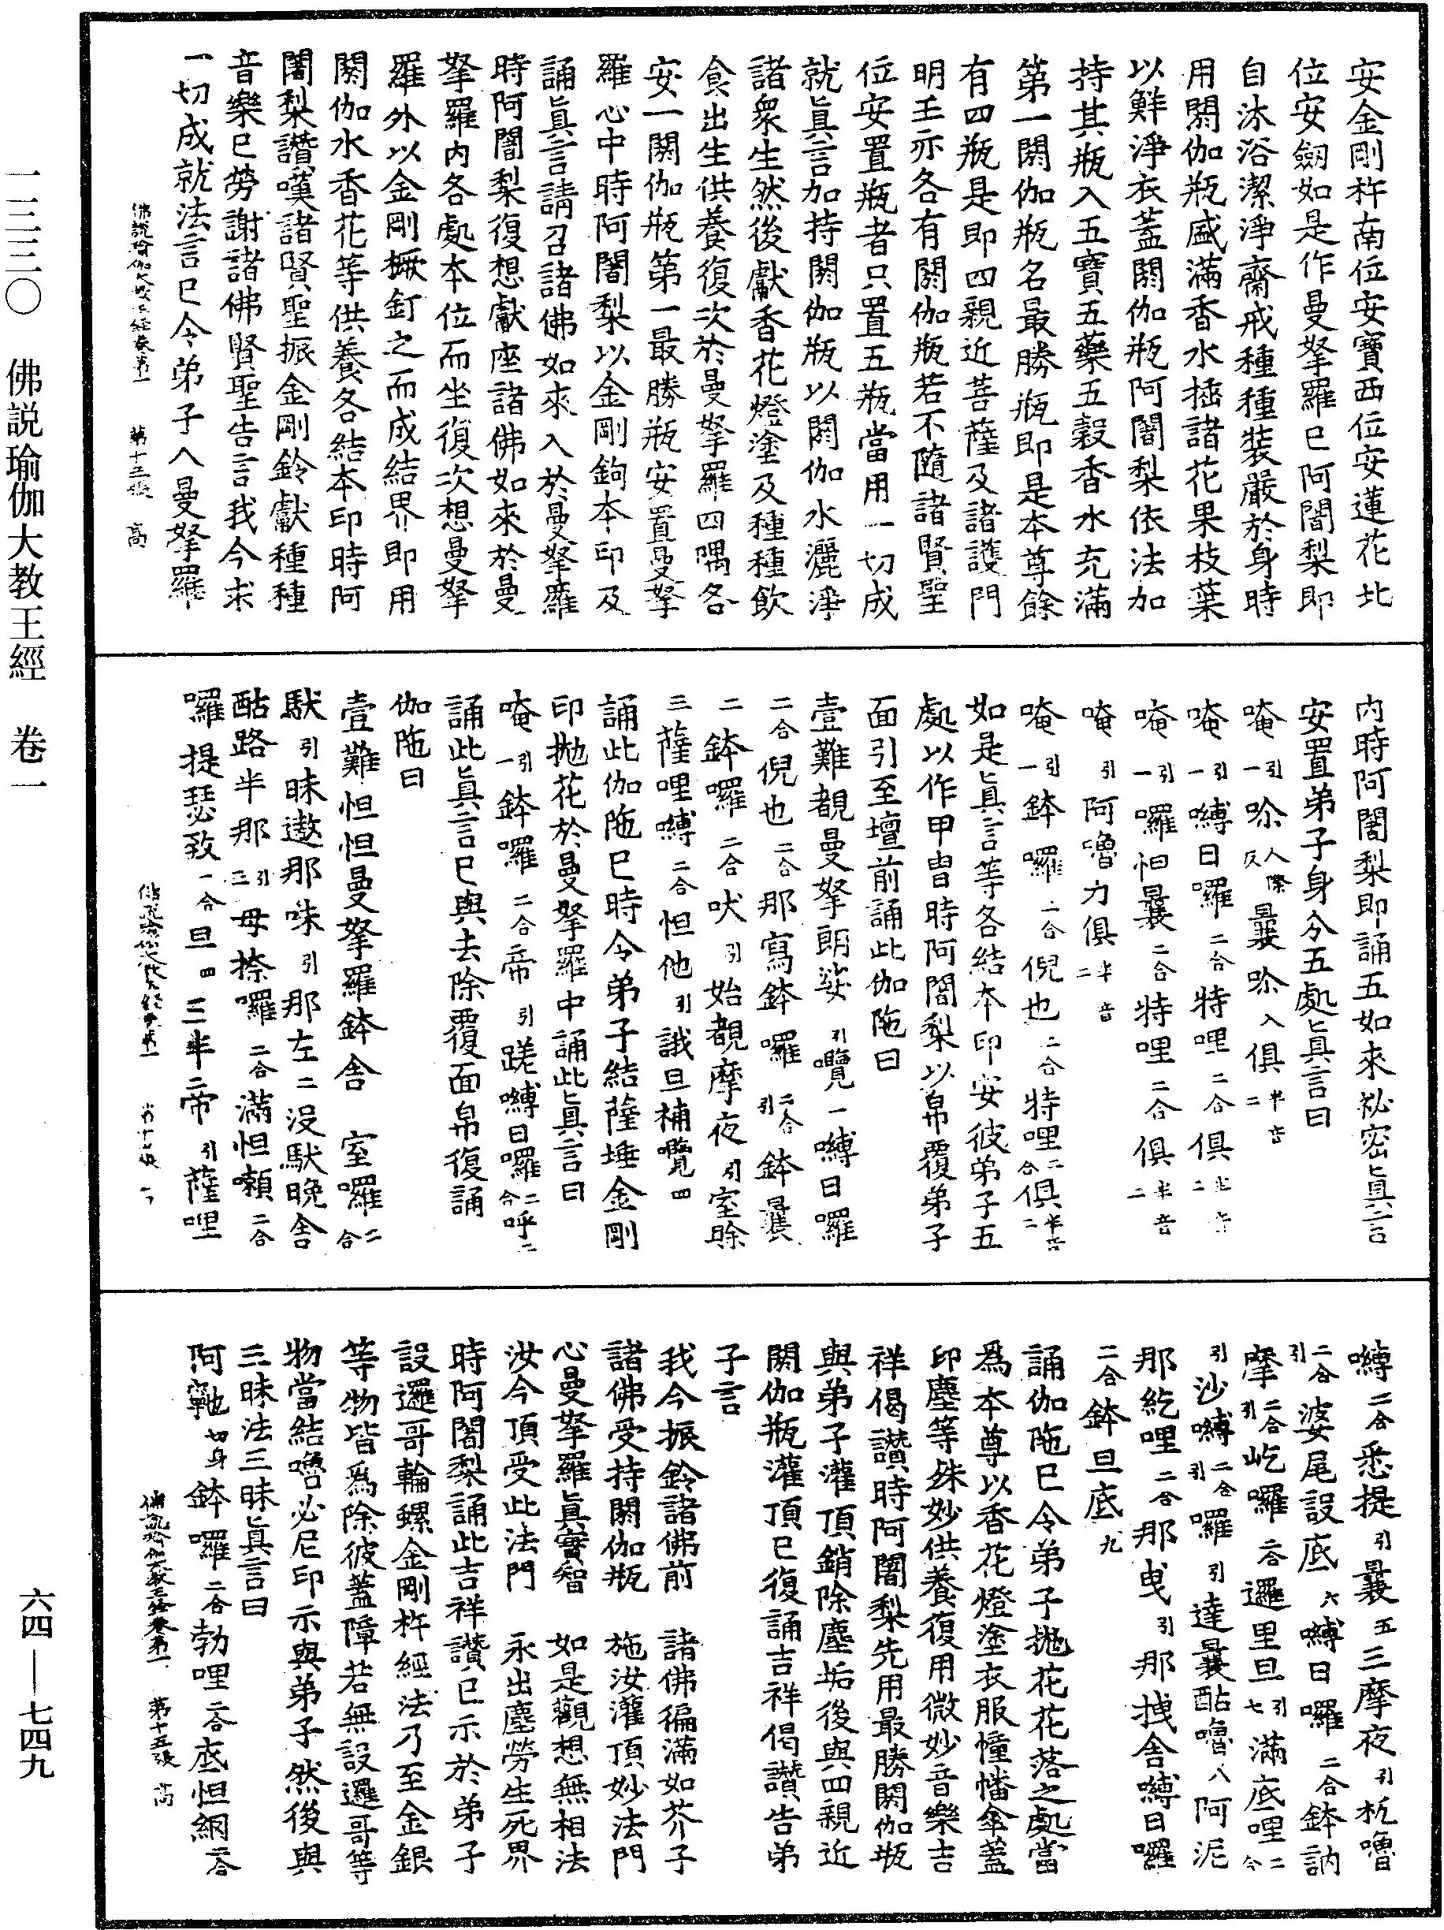 安金剛杵南位安寶西位安蓮花北
位安劒如是作曼拏羅已阿闍梨即
自沐浴潔淨齋戒種種裝嚴於身時
用閼伽瓶盛滿香水揷諸花果枝葉
以鮮淨衣蓋閼伽瓶阿闍梨依法加
持其瓶入五寶五藥五穀香水充滿
第一閼伽瓶名最勝瓶即是本尊餘
有四瓶是即四親近菩薩及諸護門
明王亦各有閼伽瓶若不隨諸賢聖
位安置瓶者只置五瓶當用一切成
就眞言加持閼伽瓶以閼伽水灑淨
諸衆生然後獻香花燈塗及種種飲
食出生供養復次於曼拏羅四隅各
安一閼伽瓶第一最勝瓶安置曼拏
羅心中時阿闍梨以金剛鉤本印及
誦眞言請召諸佛如來入於曼拏羅
時阿闍梨復想獻座諸佛如來於曼
拏羅內各處本位而坐復次想曼拏
羅外以金剛橛釘之而成結界即用
閼伽水香花等供養各結本印時阿
闍梨讚嘆諸賢聖振金剛鈴獻種種
音樂已勞謝諸佛賢聖告言我今求
一切成就法言已令弟子入曼拏羅
佛說瑜伽大教王經卷第一 第十三張 高
內時阿闍梨即誦五如來祕密眞言
安置弟子身分五處眞言曰
唵引一𠸪人際反曩𠸪入俱半音二
唵引一嚩日囉二合特哩二合俱半音二
唵引一囉怛曩二合特哩二合俱半音二
唵引阿嚕力俱半音二
唵引一鉢囉二合倪也二合特哩二合俱半音二
如是眞言等各結本印安彼弟子五
處以作甲冑時阿闍梨以帛覆弟子
面引至壇前誦此伽陁曰
壹難覩曼拏朗娑引囕一嚩日囉
二合倪也二合那寫鉢囉二合引鉢曩
二鉢囉二合吠引始覩摩夜引室除
三薩哩嚩二合怛他引誐旦補囕四
誦此伽陁已時令弟子結薩埵金剛
印拋花於曼拏羅中誦此眞言曰
唵引一鉢囉二合帝引蹉嚩日囉二合呼二
誦此眞言已與去除覆面帛復誦
伽陁曰
壹難怛怛曼拏羅鉢舍 室囉二合
馱引昧遨那味引那左二沒馱晚舍
酤路半那引三毋捺囉二合滿怛嚩二合
囉提瑟致二合旦四三半帝引薩哩
佛說瑜伽大教王經卷第一 第十四張 高
嚩二合悉提引曩五三摩夜引秔嚕
二合引婆尾設底六嚩日囉二合鉢訥
摩二合引屹囉二合邏里旦引七滿底哩二合
引沙嚩二合引囉引達曩酤嚕八阿泥
那紇哩二合那曳引那拽舍嚩日囉
二合鉢旦底九
誦伽陁已令弟子拋花花落之處當
爲本尊以香花燈塗衣服幢幡傘蓋
印塵等殊妙供養復用微妙音樂吉
祥偈讚時阿闍梨先用最勝閼伽瓶
與弟子灌頂銷除塵垢後與四親近
閼伽瓶灌頂已復誦吉祥偈讚告弟
子言
我今振鈴諸佛前 諸佛徧滿如芥子
諸佛受持閼伽瓶 施汝灌頂妙法門
心曼拏羅眞實智 如是觀想無相法
汝今頂受此法門 永出塵勞生死界
時阿闍梨誦此吉祥讚已示於弟子
設邏哥輪螺金剛杵經法乃至金銀
等物皆爲除彼蓋障若無設邏哥等
物當結嚕必尼印示與弟子然後與
三昧法三昧眞言曰
阿𩕳切身鉢囉二合勃哩二合底怛網二合
佛說瑜伽大教王經卷第一 第十五張 高
一二三三〇 佛説瑜伽大教王經 卷一
六四—七四九